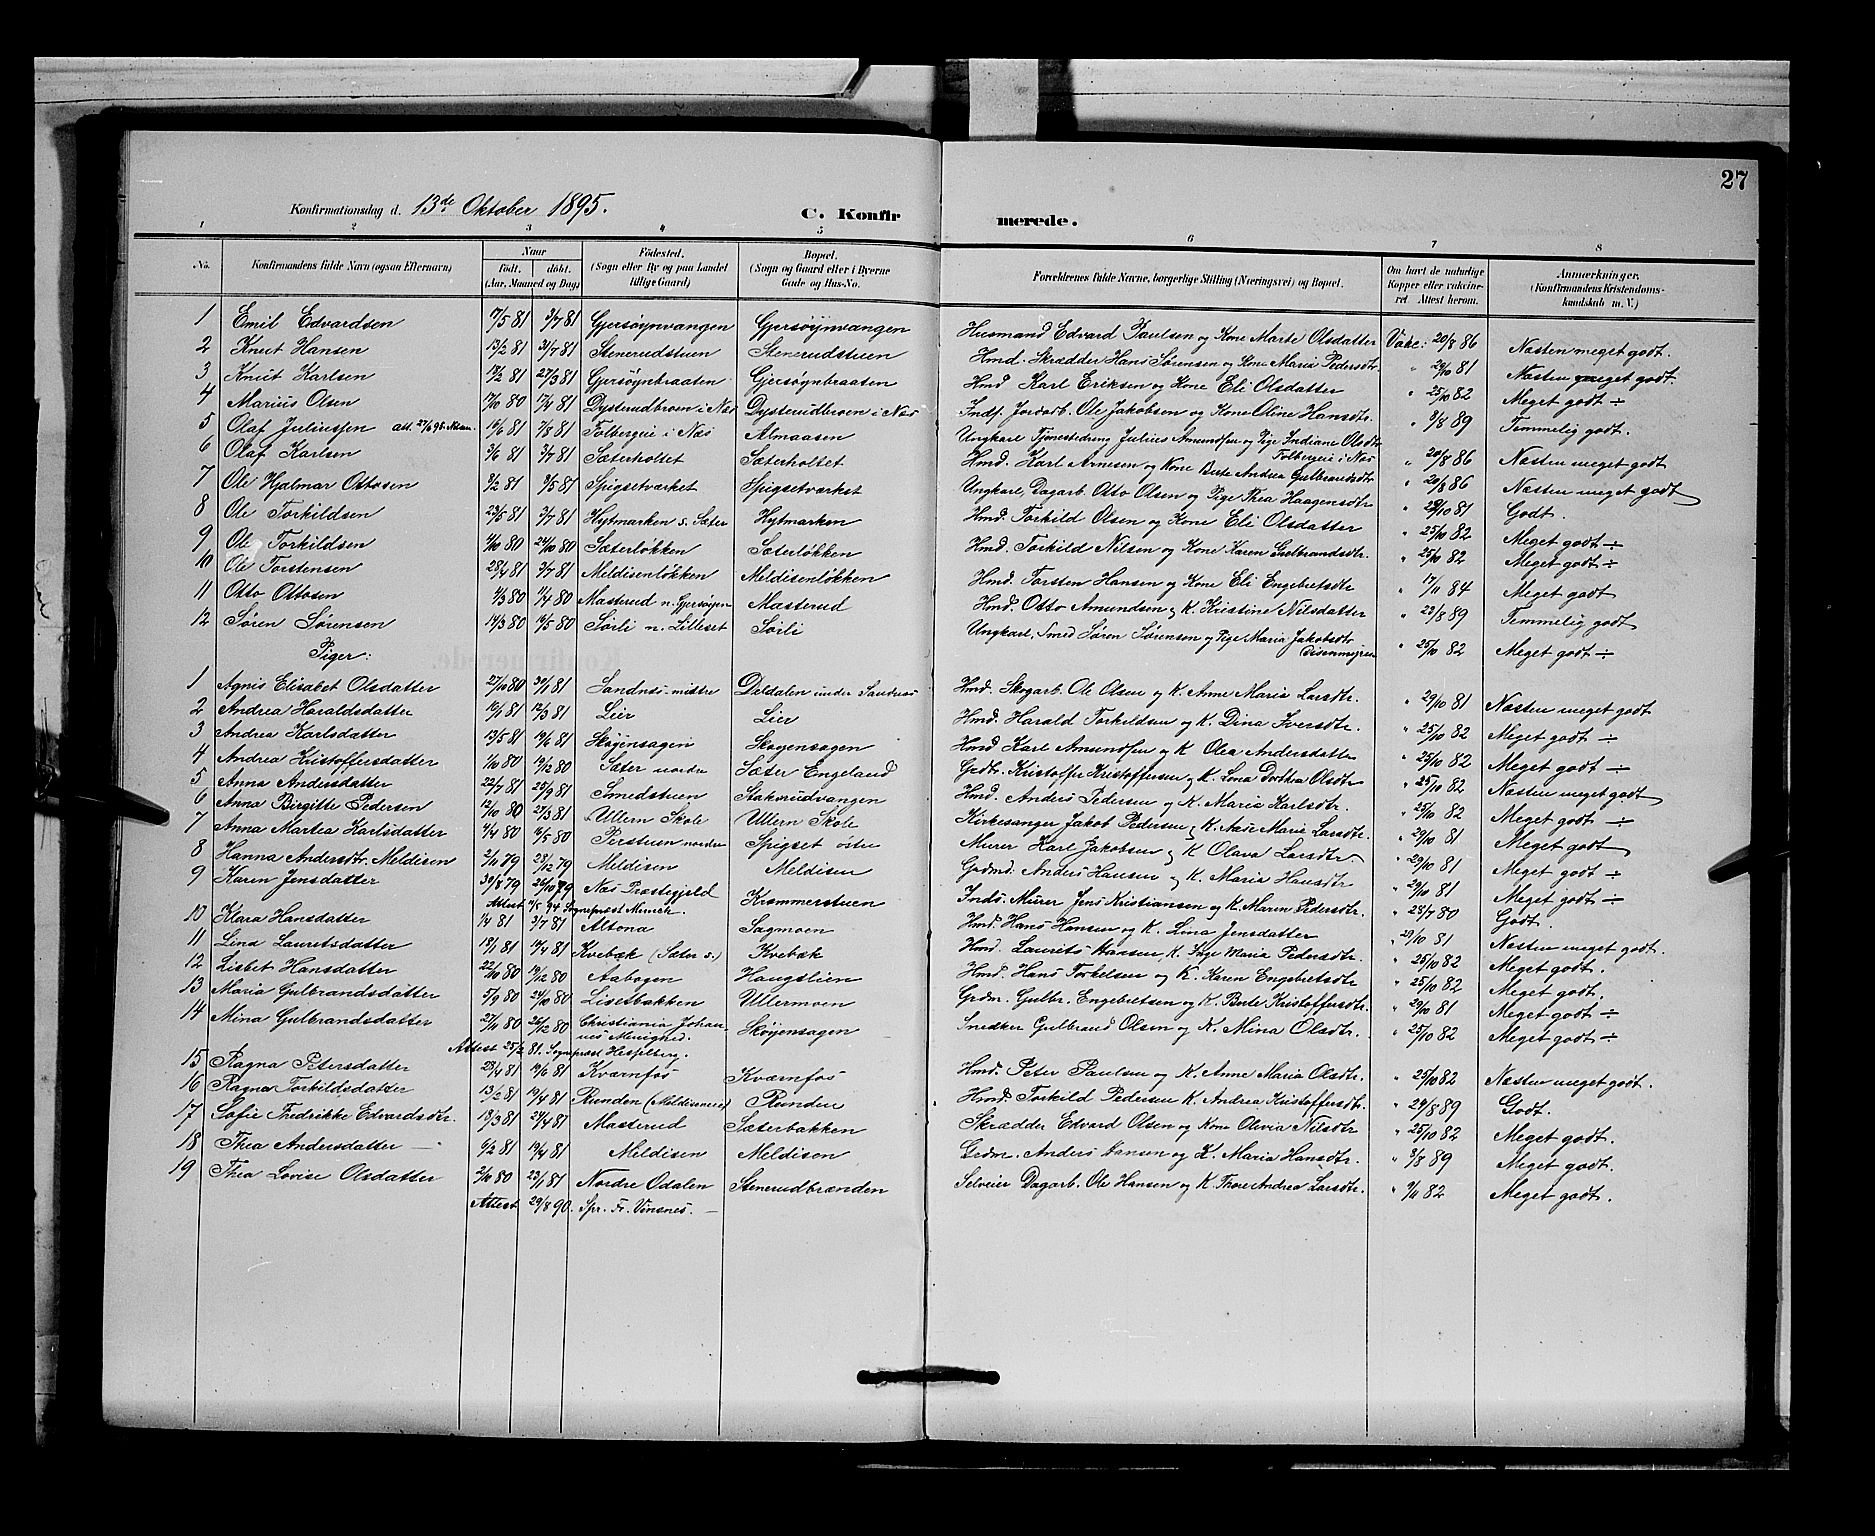 27
Konfirmationsdag d. 13de Oktober 1895.
C. Konfirmerede.
1 2 3 4 5 6 7 8
No. Konfirmandens fulde Navn (ogsaa Efternavn) Naar født. døbt. (Aar, Maaned og Dag) Fødested. (Sogn eller By og paa Landet tillige Gaard) Bopæl. (Sogn og Gaard eller i Byerne Gade og Hus-No. Forældrenes fulde Navne, borgerlige Stilling (Næringsvei) og Bopæl. Om havt de naturlige Kopper eller vakcineret. Attest herom. Anmærkninger. (Konfirmandens Kristendomskundskab m. V.)
1 Emil Edvardsen 17/5 81 3/7 81 Gjersøynvangen Gjersøynvangen Husmand Edvard Paulsen og Kone Marte Olsdatter Vakc: 20/8 86 Næsten meget godt.
2 Knut Hansen 13/2 81 31/7 81 Stenerudstuen Stenerudstuen Hmd. Skrædder Hans Sørensen og Kone Maria Pedersdtr " 29/10 81 Næsten meget godt.
3 Knut Karlsen 19/2 81 27/3 81 Gjersøynbraaten Gjersøynbraaten Hmd Karl Eriksen og Kone Eli Olsdatter " 25/10 82 Meget godt ÷
4 Marius Olsen 17/10 80 17/4 81 Dysterudbroen i Næs Dysterudbroen i Næs Inds. Jordarb. Ole Jakobsen og Kone Oline Hansdtr. " 8/8 89 Temmelig godt.
5 Olaf Juliussen att. 27/6 95 Almaasen Folbergeie i Næs 19/6 81 7/8 81 Ungkarl Tjenestedreng Julius Amundsen og Pige Indiane Olsdtr Folbergeie i Næs " 20/8 86 Næsten meget godt
6 Olaf Karlsen 3/6 81 3/7 81 Sæterholtet Sæterholtet Hmd. Karl Arnesen og Kone Berte Andrea Gulbrandsdtr " 20/8 86 Næsten meget godt
7 Ole Hjalmar Ottosen 3/2 81 3/5 81 Spigsetværket Spigsetværket Ungkarl, Dagarb. Otto Olsen og Pige Thea Haagensdtr " 29/10 81 Godt.
8 Ole Torkildsen 23/5 81 3/7 81 Hytmarken s. Sæter Hytmarken Hmd. Torkild Olsen og Kone Eli Olsdatter " 25/10 82 Meget godt ÷
9 Ole Torkildsen 4/10 80 24/10 80 Sæterløkken Sæterløkken Hmd. Torkild Nilsen og Kone Karen Gulbrandsdtr. " 25/10 82 Meget godt ÷
10 Ole Torstensen 28/4 81 3/7 81 Meldisenløkken Meldisenløkken Hmd. Torsten Hansen og Kone Eli Engebretsdtr " 17/11 84 Meget godt
11 Otto Ottosen 4/3 80 11/4 80 Masterud n. Gjersøyen Masterud Hmd. Otto Amundsen & K. Kristine Nilsdatter " 23/8 89 Temmelig godt
12 Søren Sørensen 14/3 80 16/5 80 Sørli n. Lilleset Sørli Ungkarl, Smed Søren Sørensen og Pige Maria Jakobsdtr Disenmyren " 25/10 82 Meget godt ÷
Piger:
1 Agnis Elisabet Olsdatter 27/10 80 30/1 81 Sandnæs mittre Deldalen under Sandnæs Hmd. Skogarb. Ole Olsen og K. Anne Maria Larsdtr. " 29/10 81 Næsten meget godt
2 Andrea Haraldsdatter 16/1 81 12/3 81 Lier Lier Hmd. Harald Torkildsen og K. Dina Iversdtr. " 25/10 82 Meget godt ÷
3 Andrea Karlsdatter 13/5 81 19/6 81 Skøyensagen Skøyensagen Hmd Karl Amundsen og K. Olea Andersdatter " 25/10 82 Meget godt ÷
4 Andrea Kristoffersdatter 1/10 80 19/12 80 Sæter nordre Sæter Engeland Grdbr. Kristoffer Kristoffersen og K. Lina Dorthea Olsdtr " 25/10 82 Næsten meget godt
5 Anna Andersdatter 22/7 81 25/9 81 Smedstuen Stakerudvangen Hmd. Anders Pedersen og K. Maria Karlsdtr. " 25/10 82 Meget godt ÷
6 Anna Birgitte Pedersen 12/10 80 27/3 81 Ullern Skole Ullern Skole Kirkesanger Jakob Pedersen & K. Aase Marie Larsdtr. " 29/10 81 Meget godt
7 Anna Martea Karlsdatter 4/4 80 16/5 80 Perstuen nordre Spigset østre Murer Karl Jakobsen & K Olava Larsdtr. " 29/10 81 Meget godt ÷
8 Hanna Andersdtr. Meldisen 2/11 79 28/12 79 Meldisen Meldisen Grdmd. Anders Hansen & K. Maria Hansdtr " 29/10 81 Meget godt ÷
9 Karen Jensdatter 30/8 79 26/10 79 Næs Præstegjeld Krommerstuen Inds. Murer Jens Kristiansen og K. Maren Pedersdtr. " 28/7 80 Godt.
Attest 7/5 94 Sogneprest Munch.
10 Klara Hansdatter 1/4 81 3/7 81 Altona Sagmoen Hmd. Hans Hansen og K. Lina Jensdatter " 29/10 81 Næsten meget godt.
11 Lina Lauritsdatter 18/1 81 17/4 81 Kvebæk (Sæter s.) Kvebæk Hmd. Laurits Hansen K. Inge Maria Pedersdtr. " 25/10 82 Meget godt.
12 Lisbet Hansdatter 22/10 80 19/12 80 Aabogen Haugslien Hmd. Hans Torkelsen og K. Karen Engebretsdtr " 25/10 82 Meget godt.
13 Maria Gulbrandsdatter 5/9 80 24/10 80 Lisetbakken Ullermoen Grdm. Gulbr. Engebretsen og K. Berte Kristoffersdtr. " 29/10 81 Meget godt ÷
14 Mina Gulbrandsdatter 27/11 80 26/12 80 Christiania Johannes Menighed. Skøyensagen Snedker Gulbrand Olsen og K. Mina Olsdtr. " 25/10 82 Meget godt ÷
Attest 25/2 81. Sogneprest Hesselberg.
15 Ragna Petersdatter 23/4 81 19/6 81 Kværnfos Kværnfos Hmd. Peter Paulsen og K. Anne Maria Olsdtr. " 25/10 82 Næsten meget godt.
16 Ragna Torkildsdatter 13/2 81 19/4 81 Runden (Meldiseneie) Runden Hmd. Torkild Pedersen K. Andrea Kristoffersdtr. " 24/8 89 Godt.
17 Sofie Fredrikke Edvardsdtr. 18/3 81 24/4 81 Masterud Sæterbakken Skrædder Edvard Olsen og Kone Olivia Nilsdtr " 25/10 82 Meget godt.
18 Thea Andersdatter 6/2 81 19/4 81 Meldisen Meldisen Grdm. Anders Hansen og K. Maria Hansdtr. " 3/8 89 Meget godt.
19 Thea Lovise Olsdatter 2/10 80 23/1 81 Nordre Odalen Stenerudbrænden Selveier Dagarb. Ole Hansen og K. Thore Andrea Larsdtr. " 9/11 82 Meget godt.
Attest 29/8 90. Spr. Fr. Vinsnes.